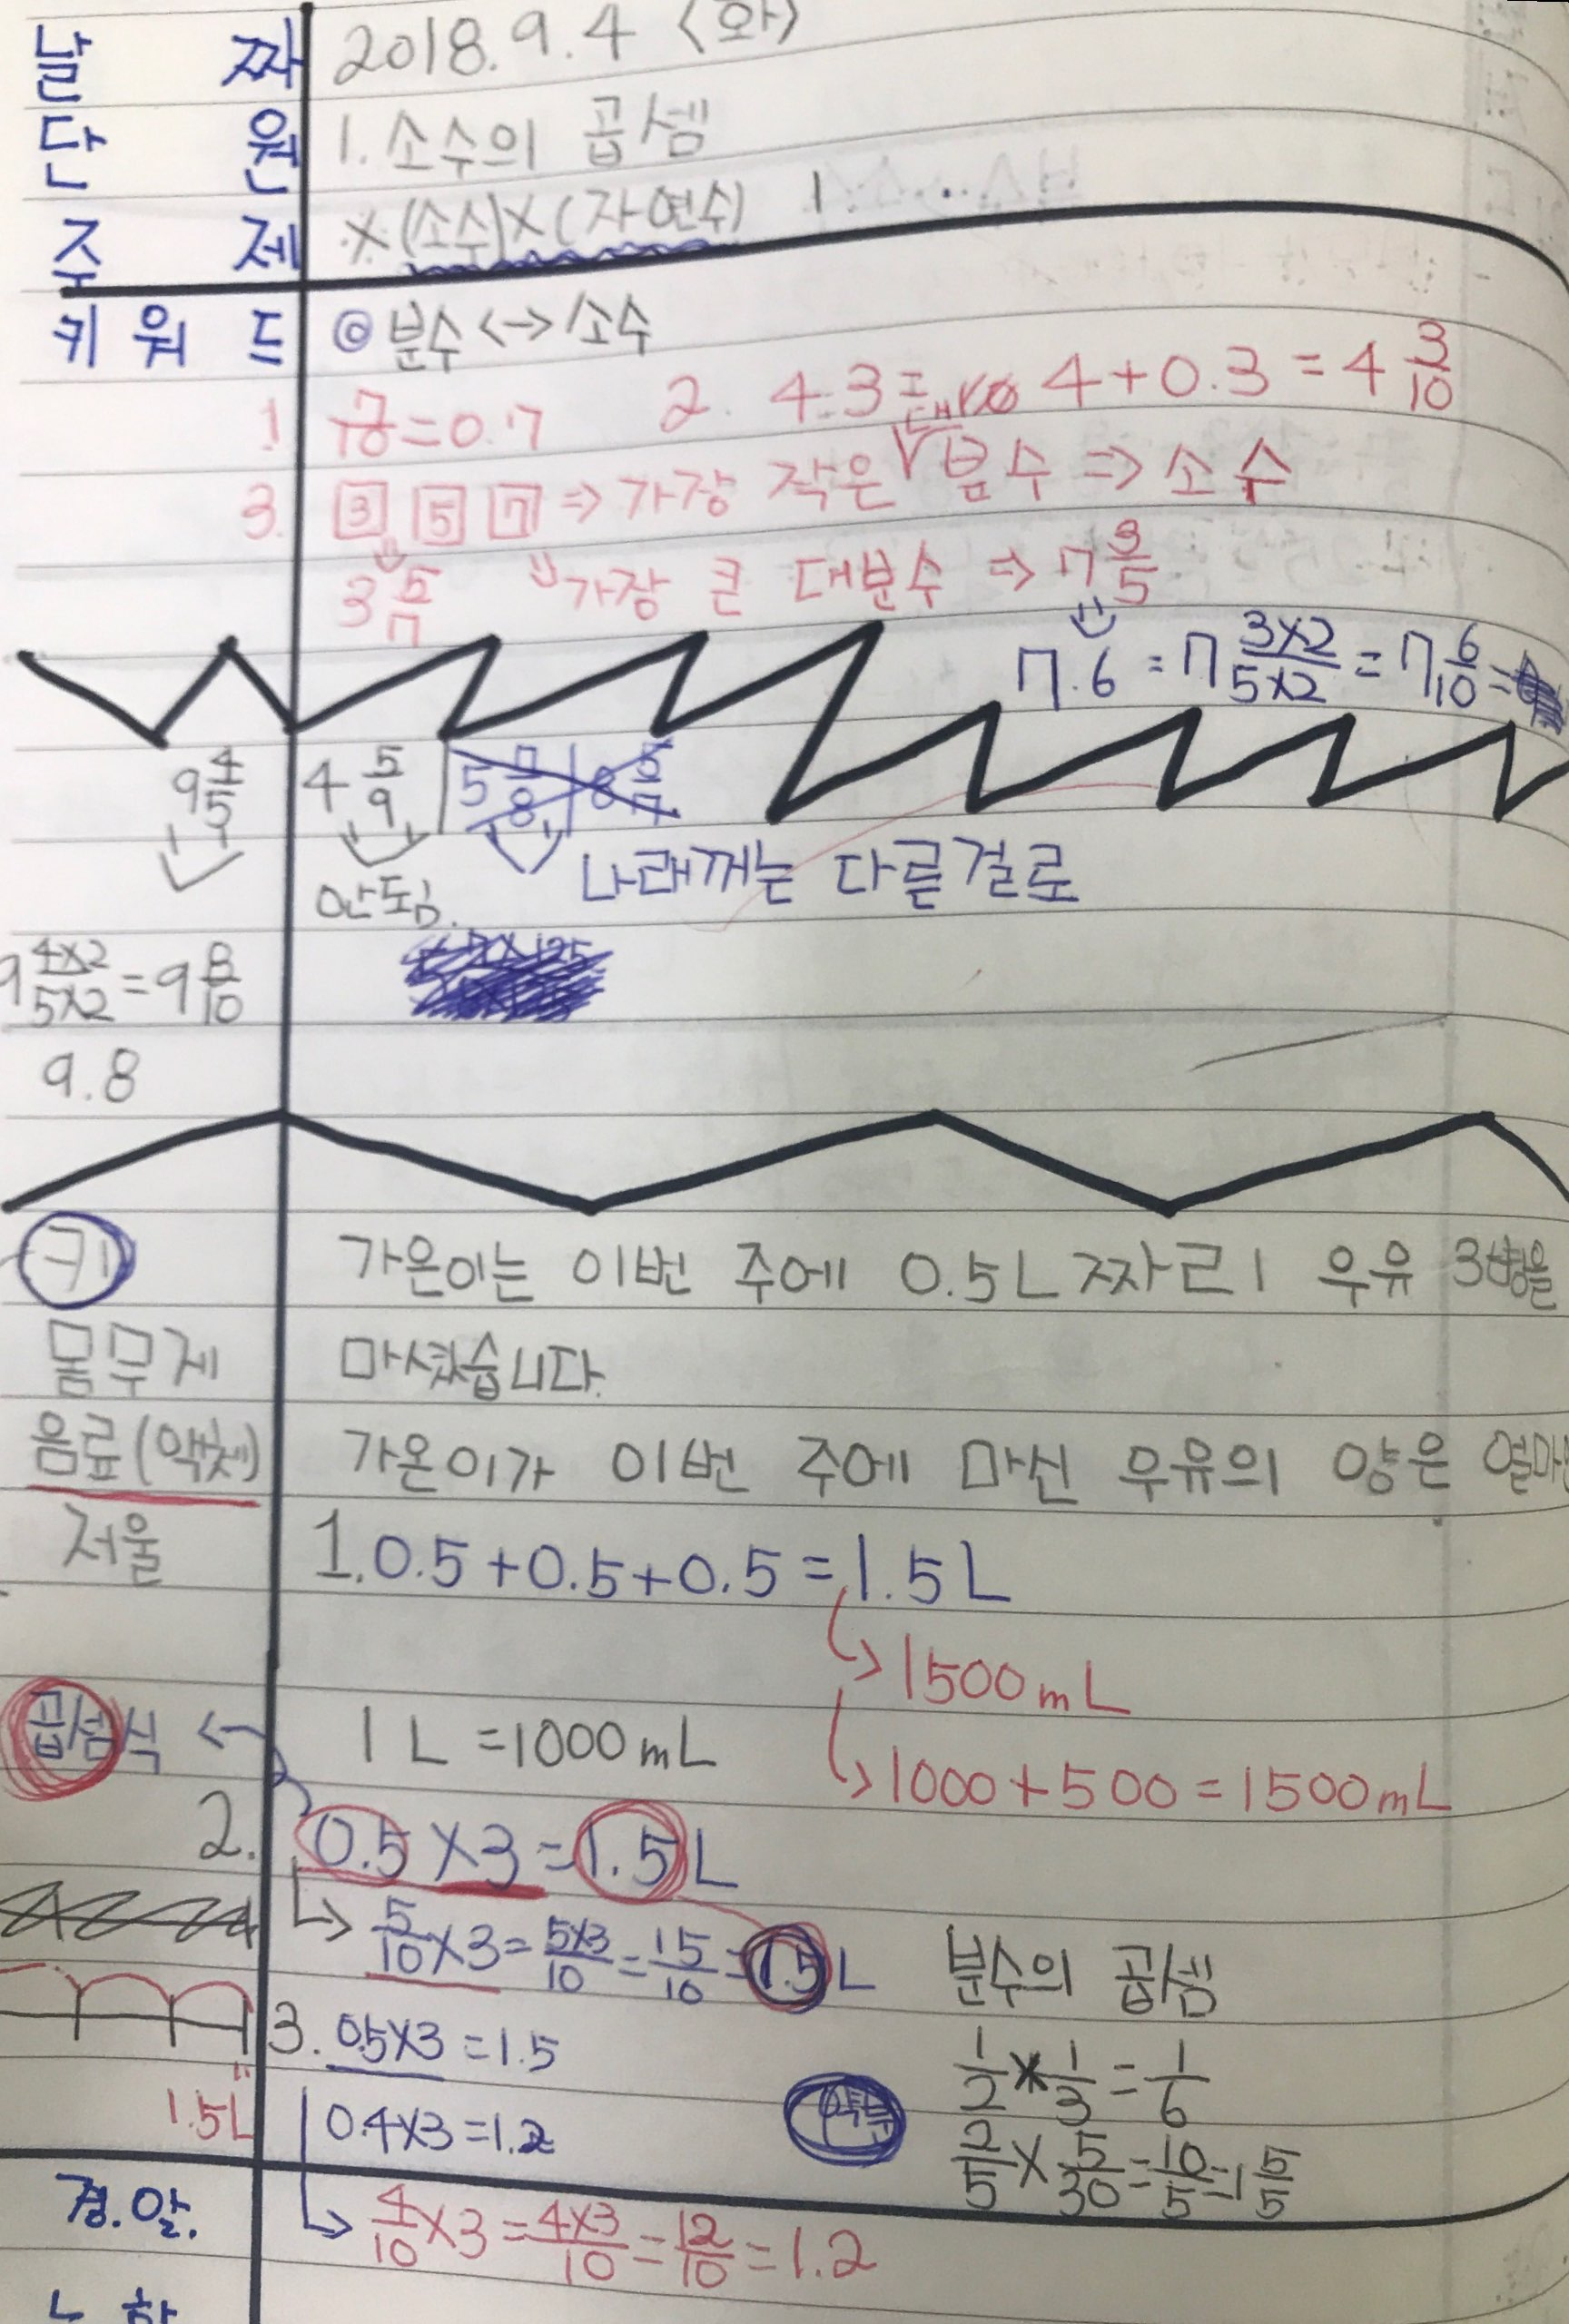 날 짜 2018.9.4 <화>
단 원 1. 소수의 곱셈
주 제 × (소수)×(자연수) 1
키 워 드 ◎ 분수 <-> 소수
1 7/10=0.7 2. 4.3= 4+0.3 = 4 3/10
대
3. 3 5 7 => 가장 작은 √ 분수 => 소수
3 5/7 가장 큰 대분수 => 7 3/5
7.6 = 7 3×2/5×2 = 7 6/10 =
9 4/5 4 5/9 5 7/8 8 5/7
안됨. 나래꺼는 다른걸로
9 4×2/5×2 = 9 8/10
9.8
키 가온이는 이번 주에 0.5L 짜리 우유 3병을
몸무게 마셨습니다.
음료(액체) 가온이가 이번 주에 마신 우유의 양은 얼마
저울 1. 0.5+0.5+0.5=1.5L
→ 1500mL
곱셈식 ← 1L=1000mL
→ 1000+500=1500mL
2. 0.5×3=1.5L
→ 5/10×3=5×3/10=15/10=1.5L 분수의 곱셈
3. 0.5×3=1.5
1/2×1/3=1/6
1.5L 0.4×3=1.2 약분
2/5×5/30=10/5=1 5/5
경.알.
→ 4/10×3=4×3/10=12/10=1.2